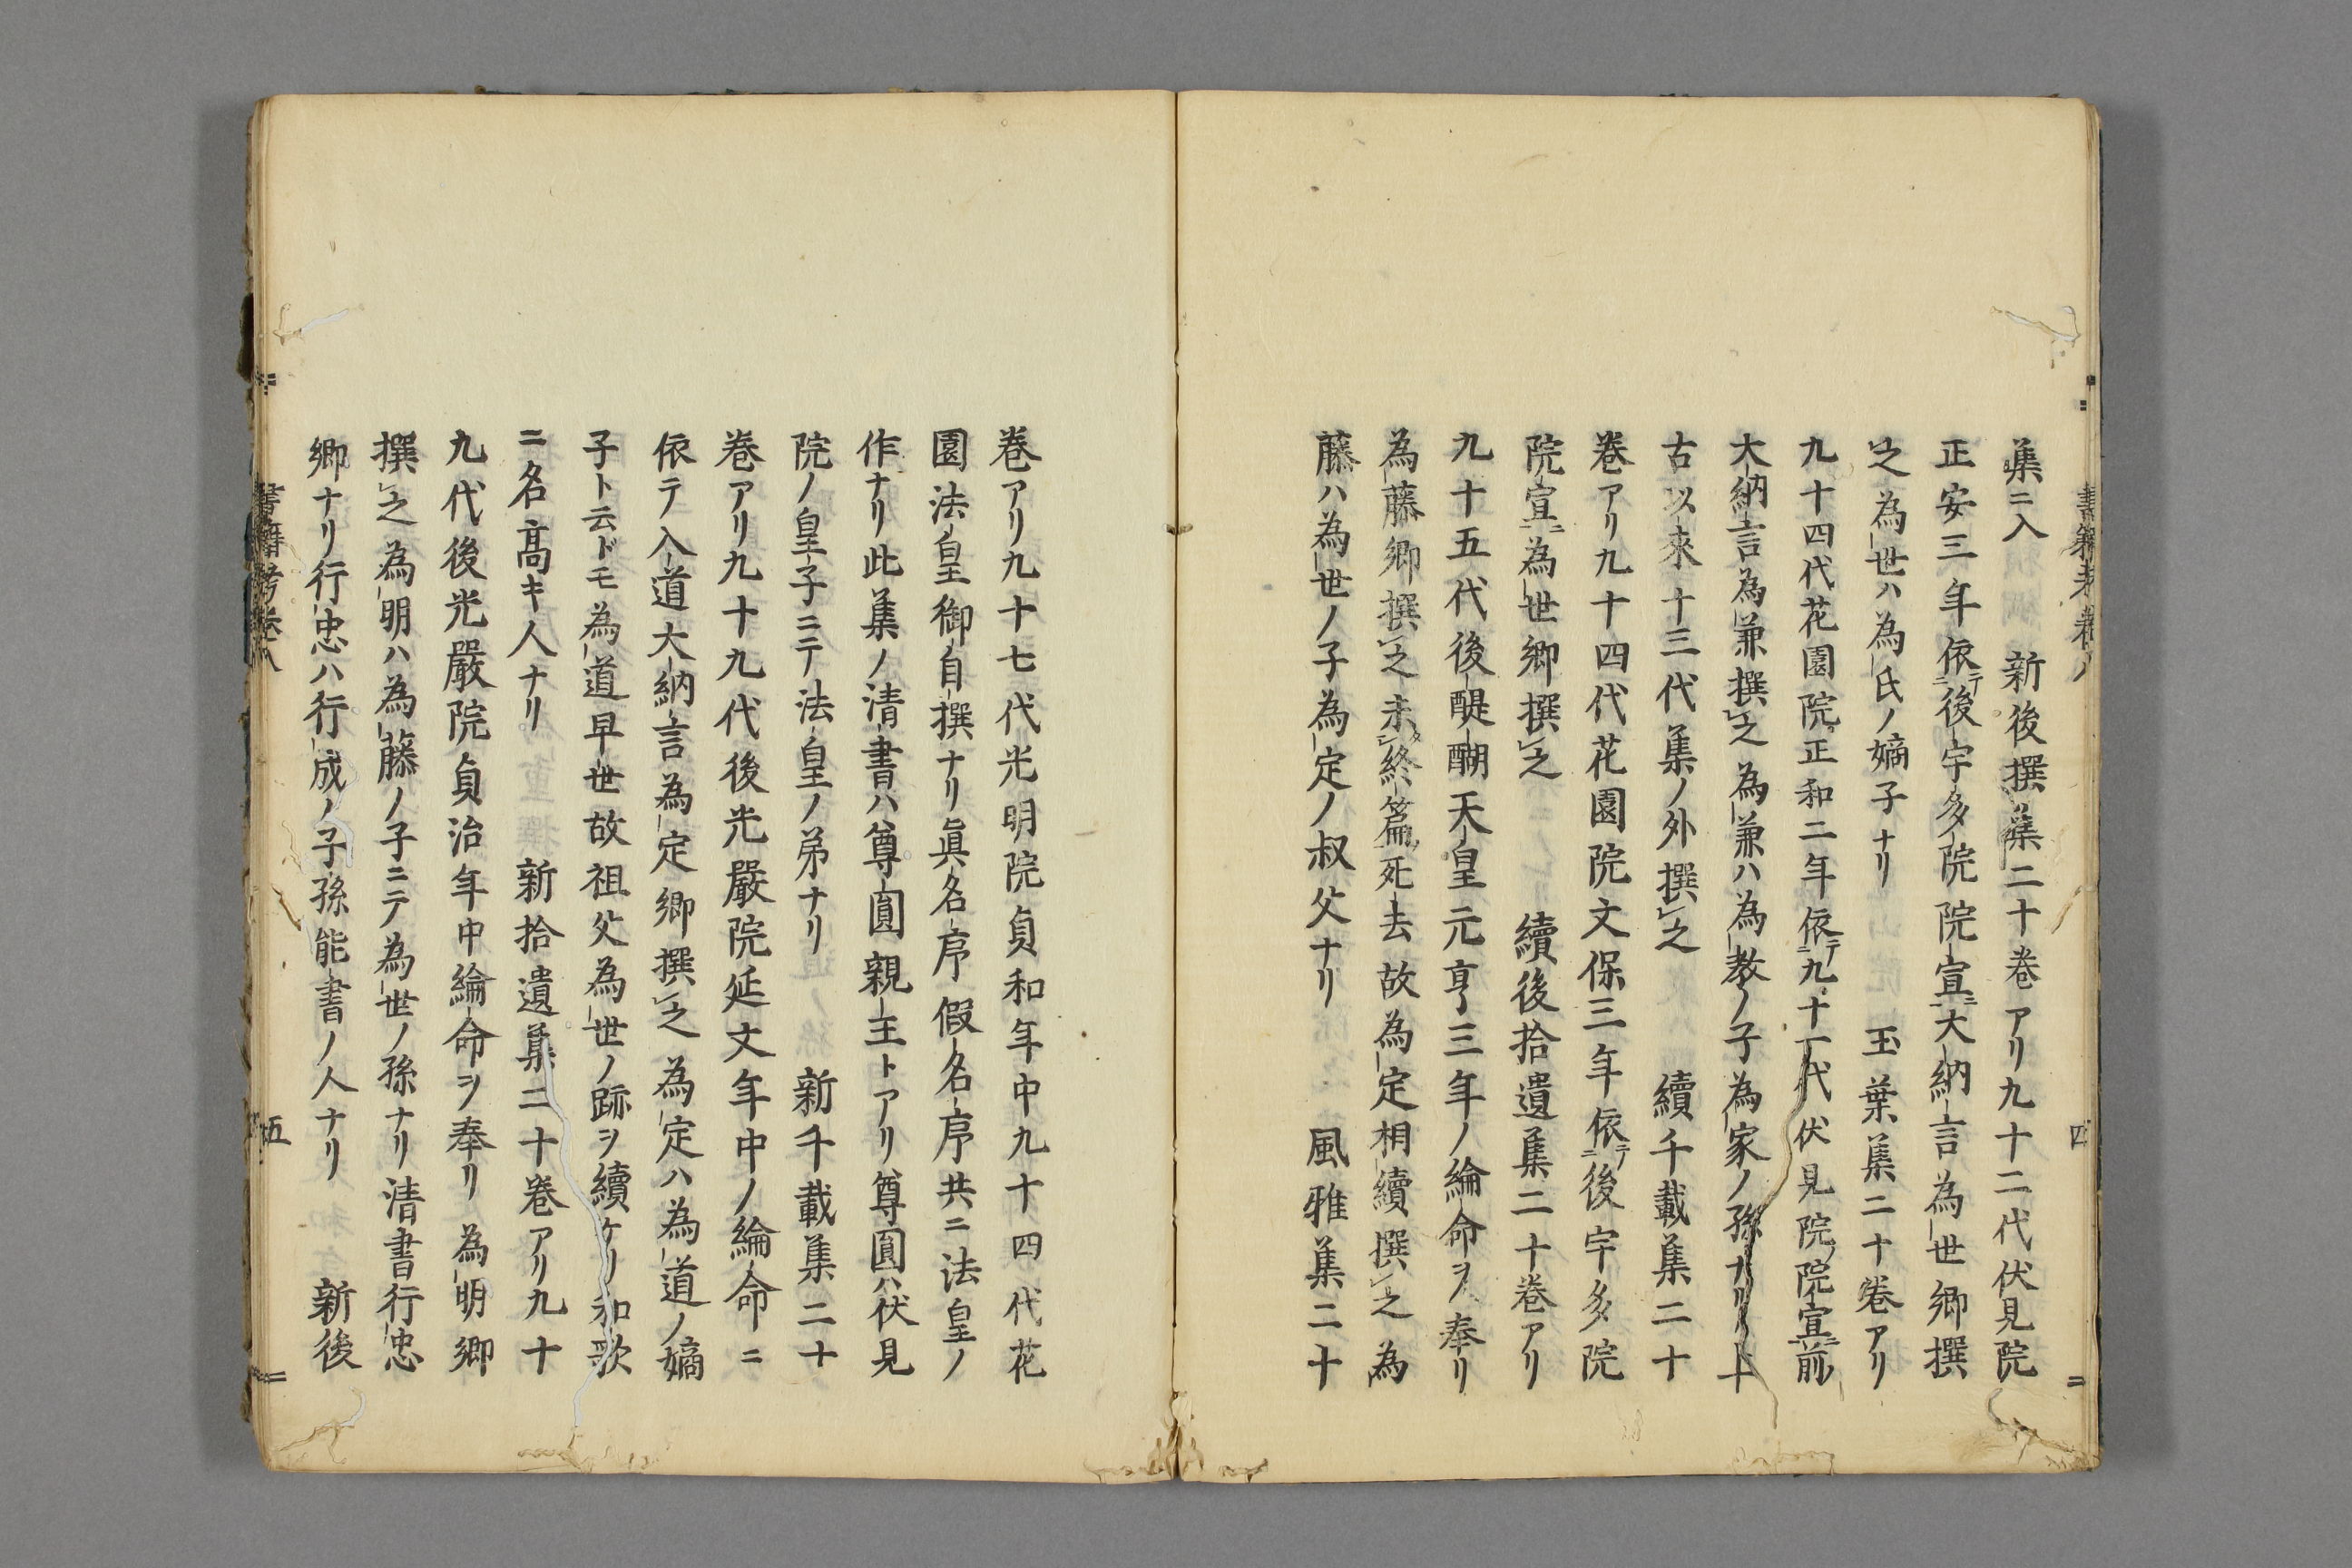 集ニ入　新後撰集二十巻アリ九十二代伏見院
正安三年依テ後宇多院院宣ニ大納言為世卿撰
之為世ハ為氏ノ嫡子ナリ　玉葉集二十巻アリ
九十四代花園院正和二年依テ九十一代伏見院ノ院宣ニ前
大納言為兼撰之為兼ハ為教ノ子為家ノ孫ナリ上
古以來十三代集ノ外撰之　續千載集二十
巻アリ九十四代花園院文保三年依テ後宇多院
院宣ニ為世卿撰之　續後拾遺集二十巻アリ
九十五代後醍醐天皇元亨三年ノ綸命ヲ奉リ
為藤卿撰之未タ終篇死去故為定相續撰之為
藤ハ為世ノ子為定ノ叔父ナリ　風雅集二十
書籍考巻八　四
巻アリ九十七代光明院貞和年中九十四代花
園法皇御自撰ナリ眞名序假名序共ニ法皇ノ
作ナリ此集ノ清書ハ尊圓親王トアリ尊圓ハ伏見
院ノ皇子ニテ法皇ノ弟ナリ　新千載集二十
巻アリ九十九代後光嚴院延文年中ノ綸命ニ
依テ入道大納言為定卿撰之為定ハ為道ノ嫡
子ト云ドモ為道早世故祖父為世ノ跡ヲ續ケリ和歌
ニ名高キ人ナリ　新拾遺集二十巻アリ九十
九代後光嚴院貞治年中綸命ヲ奉リ為明卿
撰之為明ハ為藤ノ子ニテ為世ノ孫ナリ清書行忠
卿ナリ行忠ハ行成ノ子孫能書ノ人ナリ　新後
書籍考巻八　五